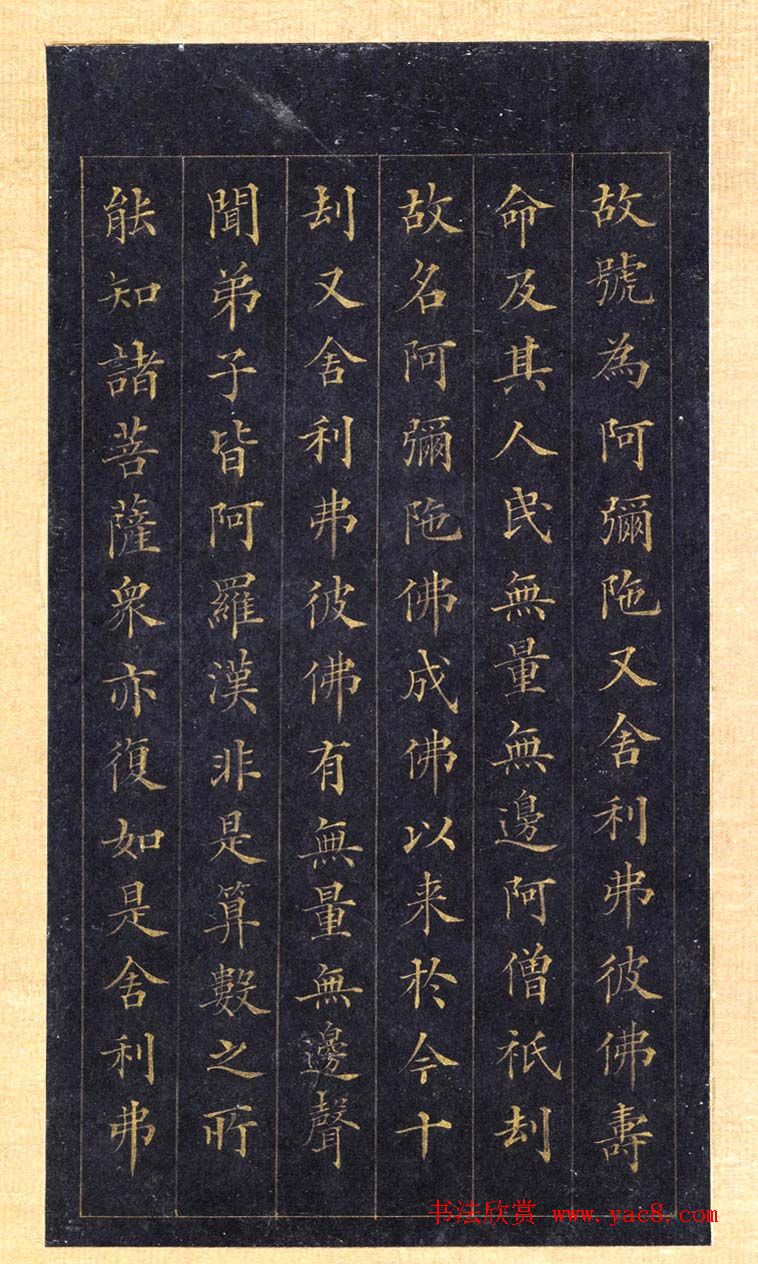 故號為阿彌陁又舍利弗彼佛壽
命及其人民無量無邊阿僧祇刧
故名阿彌陁佛成佛以来於今十
刧又舍利弗彼佛有無量無邊聲
聞弟子皆阿羅漢非是算數之所
能知諸菩薩衆亦復如是舍利弗
书法欣赏 www.yac8.com